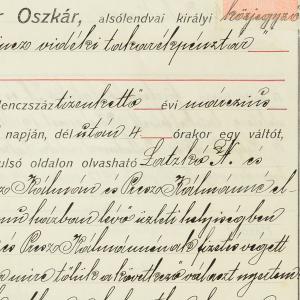 r Oszkár, alsólendvai királyi közjegyző
vidéki takarékpénztár "
lenczszáz tizenkettő évi márczius
napján, dél után 4 órakor egy váltót,
ulsó oldalon olvasható Latzkó N. és
Kálmán és Presz Kálmánné el-
házban lévő üzleti helyiségben
és Presz Kálmánnénak fizetés végett
mire tőlük a következő választ nyertem